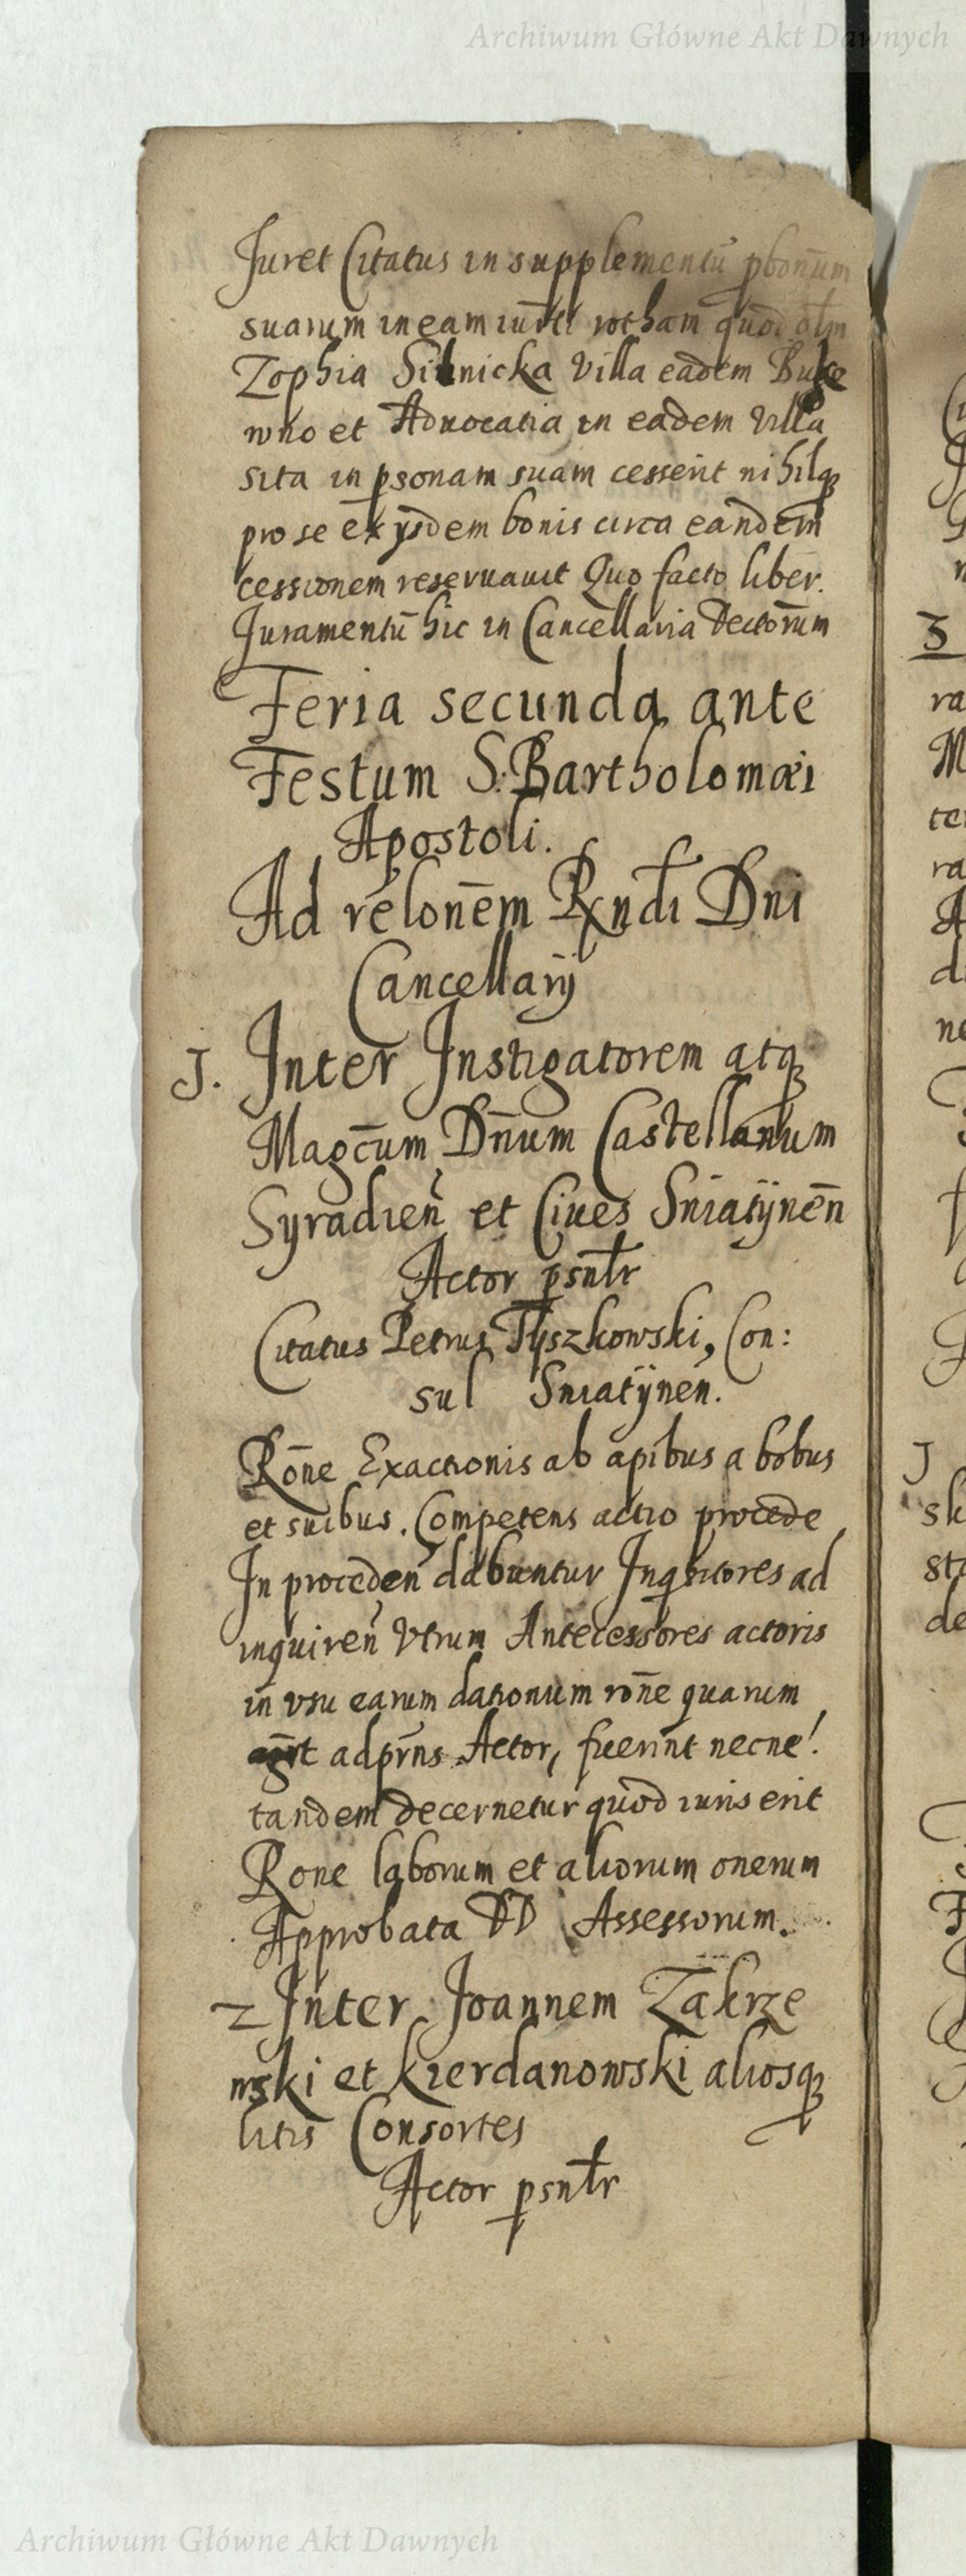 Archiwum Główne Akt Dawnych
Juret Citatus in supplementū pbonum
suarum in eam iurti rotham quod olm
Zophia Sihnicka Villa eadem Buke
wno et Aduocatia in eadem Villa
sita in psonam suam cesserit nihilq
pro se ex ysdem bonis circa eandem
cessionem reseruauit Quo facto liber.
Juramentū hic in Cancellaria Dectorum
Feria secunda ante
Festum S. Bartholomæi
Apostoli.
Ad relonēm Rxndi Dni
Cancellarij
J. Inter Instigatorem atq
Magcum Dnum Castellanum
Syradien et Ciues Sniatÿnen
Actor psntr
Citatus Petrus Tyszkowski, Con:
sul Sniatÿnen.
Rōne Exactionis ab apibus a bobus
et suibus. Competens actio procede
In proceden dabuntur Inqsitores ad
inquiren Vtrum Antecessores actoris
in vsu earum dationum rōne quarum
agit adprns Actor, fuerint necne!
tandem decernetur quod iuris erit
Rone laborum et aliorum onerum
Approbata DD Assessorum.
2 Inter Joannem Zakrze
wski et Kierdanowski aliosq
litis Consortes
Actor psntr
Archiwum Główne Akt Dawnych